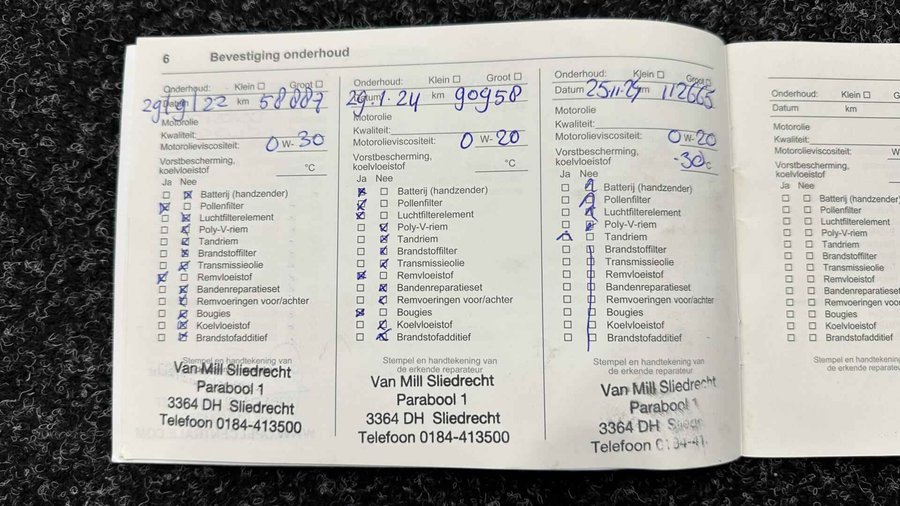 6 Bevestiging onderhoud
Onderhoud: Klein ☐ Groot ☐
Datum 29/9/22 km 58887
Motorolie
Kwaliteit:
Motorolieviscositeit: 0 W- 30
Vorstbescherming,
koelvloeistof °C
Ja Nee
☐ ☒ Batterij (handzender)
☒ ☐ Pollenfilter
☐ ☒ Luchtfilterelement
☐ ☒ Poly-V-riem
☐ ☒ Tandriem
☐ ☒ Brandstoffilter
☐ ☒ Transmissieolie
☒ ☐ Remvloeistof
☐ ☒ Bandenreparatieset
☐ ☒ Remvoeringen voor/achter
☐ ☒ Bougies
☐ ☒ Koelvloeistof
☐ ☒ Brandstofadditief
Stempel en handtekening van
de erkende reparateur
Van Mill Sliedrecht
Parabool 1
3364 DH Sliedrecht
Telefoon 0184-413500
Onderhoud: Klein ☐ Groot ☐
Datum 29.1.24 km 90958
Motorolie
Kwaliteit:
Motorolieviscositeit: 0 W- 20
Vorstbescherming,
koelvloeistof °C
Ja Nee
☒ ☐ Batterij (handzender)
☒ ☐ Pollenfilter
☒ ☐ Luchtfilterelement
☐ ☒ Poly-V-riem
☐ ☒ Tandriem
☐ ☒ Brandstoffilter
☐ ☒ Transmissieolie
☒ ☐ Remvloeistof
☐ ☒ Bandenreparatieset
☐ ☒ Remvoeringen voor/achter
☒ ☐ Bougies
☐ ☒ Koelvloeistof
☐ ☒ Brandstofadditief
Stempel en handtekening van
de erkende reparateur
Van Mill Sliedrecht
Parabool 1
3364 DH Sliedrecht
Telefoon 0184-413500
Onderhoud: Klein ☐ Groot ☐
Datum 25.11.24 km 112665
Motorolie
Kwaliteit:
Motorolieviscositeit: 0 W- 20
Vorstbescherming,
koelvloeistof -30 °C
Ja Nee
Batterij (handzender)
Pollenfilter
Luchtfilterelement
Poly-V-riem
Tandriem
Brandstoffilter
Transmissieolie
Remvloeistof
Bandenreparatieset
Remvoeringen voor/achter
Bougies
Koelvloeistof
Brandstofadditief
Stempel en handtekening van
de erkende reparateur
Van Mill Sliedrecht
Parabool 1
3364 DH Sliedr
Telefoon 0184-41
Onderhoud: Klein ☐ G
Datum km
Motorolie
Kwaliteit:
Motorolieviscositeit: W
Vorstbescherming,
koelvloeistof
Ja Nee
☐ ☐ Batterij (handzender)
☐ ☐ Pollenfilter
☐ ☐ Luchtfilterelement
☐ ☐ Poly-V-riem
☐ ☐ Tandriem
☐ ☐ Brandstoffilter
☐ ☐ Transmissieolie
☐ ☐ Remvloeistof
☐ ☐ Bandenreparatieset
☐ ☐ Remvoeringen voor
☐ ☐ Bougies
☐ ☐ Koelvloeistof
☐ ☐ Brandstofadditief
Stempel en handtek
de erkende repa